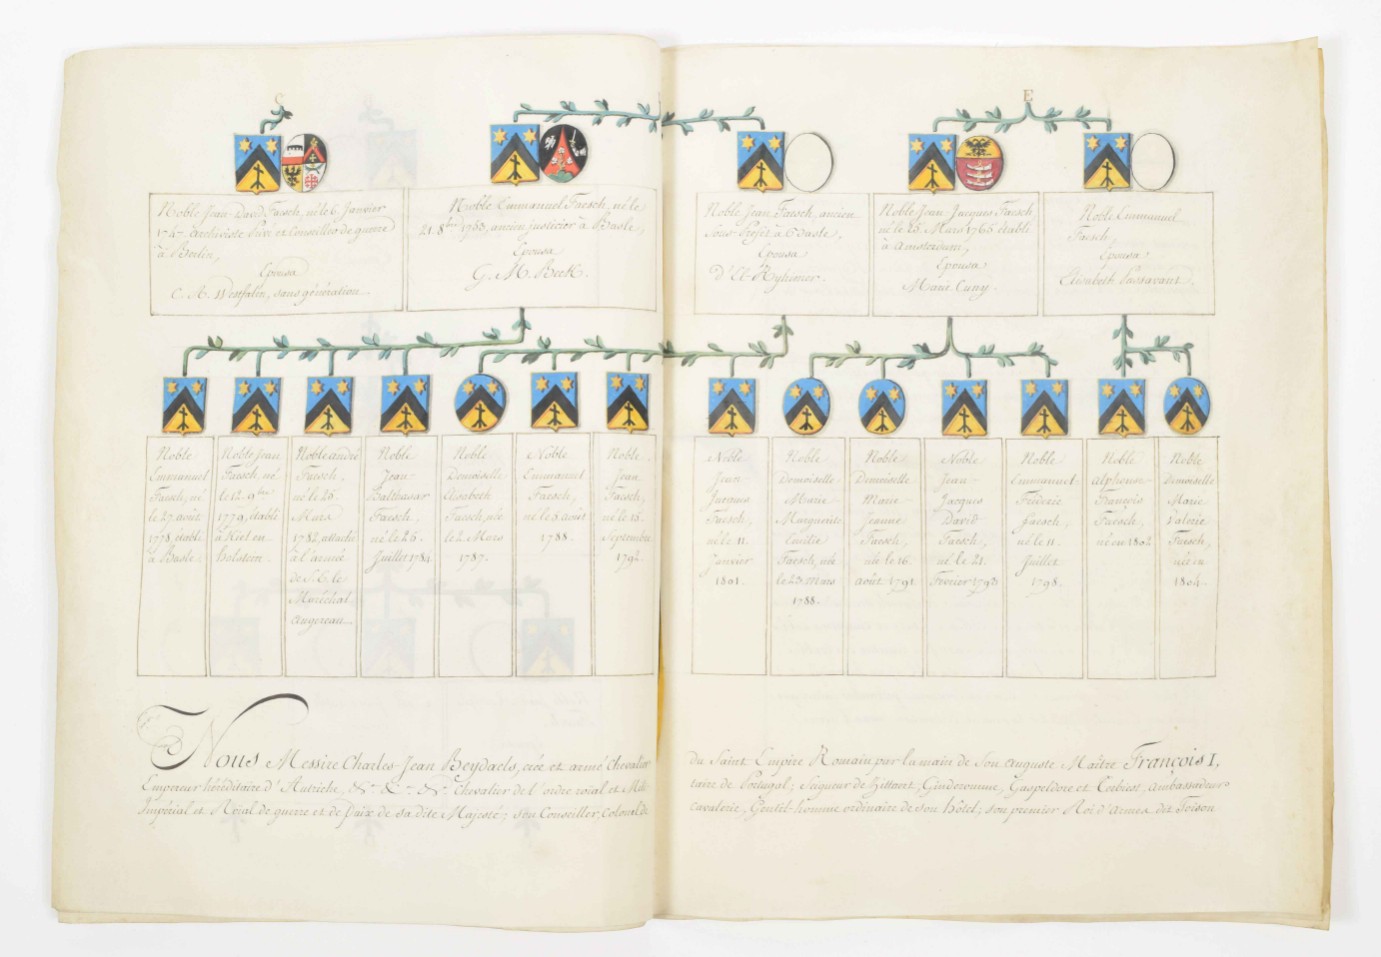 E
Noble Jean David Faesch, né le 6 Janvier
Archiviste Privé et Conseiller de guerre
à Berlin,
Epousa
Westfalin, sans génération
Noble Emmanuel Faesch, né le
21. 8bre 1753, ancien justicier à Basle,
Epousa
G. M. Beck.
Noble Jean Faesch, ancien
Sous-Préfet à Basle,
Epousa
Noble Jean Jacques Faesch
né le 25. Mars 1765 établi
à Amsterdam,
Epousa
Marie Cuny.
Noble Emmanuel
Faesch,
Epousa
Elisabeth Passavant.
Noble
Emmanuel
Faesch, né
le 27. août
1778, établi
à Basle.
Noble Jean
Faesch, né
le 12. 9bre
1779, établi
à Kiel en
holstein.
Noble andré
Faesch,
né le 25.
Mars
1782, attaché
à l'armée
de S. E. le
Maréchal
augereau.
Noble
Jean-
Balthasar
Faesch,
né le 26.
Juillet 1784.
Noble
Demoiselle
Elisabeth
Faesch, née
le 2. Mars
1787.
Noble
Emmanuel
Faesch,
né le 9. août
1788.
Noble
Jean
Faesch,
né le 15.
Septembre
1792.
Noble
Jean-
Jacques
Faesch,
né le 11
Janvier
1801.
Noble
Demoiselle
Marie-
Marguerite
Emilie
Faesch, née
le 23. Mars
1788.
Noble
Demoiselle
Marie-
Jeanne
Faesch,
née le 16.
août 1791
Noble
Jean-
Jacques
David
Faesch,
né le 21.
Fevrier 1793
Noble
Emmanuel
Fréderic
Faesch,
né le 11.
Juillet
1798.
Noble
Alphonse-
François
Faesch,
né en 1802
Noble
Demoiselle
Marie
Valerie
Faesch,
née en
1804.
Nous Messire Charles-Jean Beydaels, créé et armé Chevalier du Saint Empire Romain par la main de Son auguste Maître François I,
Empereur héréditaire d'Autriche, &c. &c. &c. Chevalier de l'ordre roïal et Militaire de Portugal; Seigneur de Zittaert, Ginderounne, Gaspeldore et Ambassadeur
Impérial et Roïal de guerre et de paix de sa dite Majesté; son Conseiller, Colonel de cavalerie, Gentil-homme ordinaire de son hôtel; son premier Roi d'Armes dit Toison